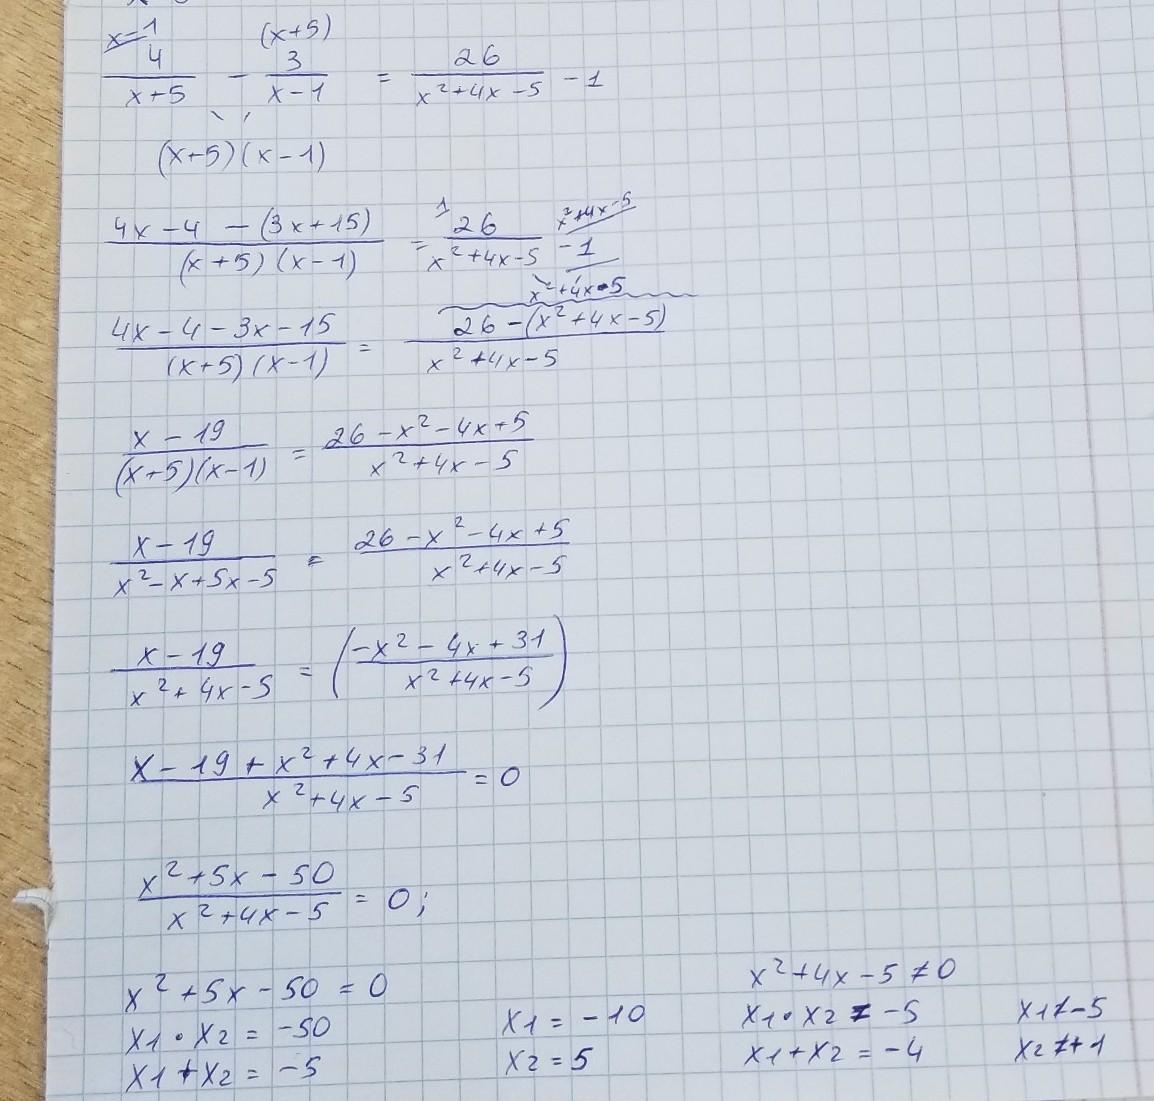 x-1 (x+5)
4/(x+5) - 3/(x-1) = 26/(x²+4x-5) - 1
(x+5)(x-1)
(4x-4-(3x+15))/((x+5)(x-1)) = ¹26/(x²+4x-5) - ˣ²⁺⁴ˣ⁻⁵1
x²+4x-5
(4x-4-3x-15)/((x+5)(x-1)) = (26-(x²+4x-5))/(x²+4x-5)
(x-19)/((x+5)(x-1)) = (26-x²-4x+5)/(x²+4x-5)
(x-19)/(x²-x+5x-5) = (26-x²-4x+5)/(x²+4x-5)
(x-19)/(x²+4x-5) = ((-x²-4x+31)/(x²+4x-5))
(x-19+x²+4x-31)/(x²+4x-5) = 0
(x²+5x-50)/(x²+4x-5) = 0;
x²+5x-50=0 x²+4x-5≠0
x1·x2=-50 x1=-10 x1·x2=-5 x1≠-5
x1+x2=-5 x2=5 x1+x2=-4 x2≠+1